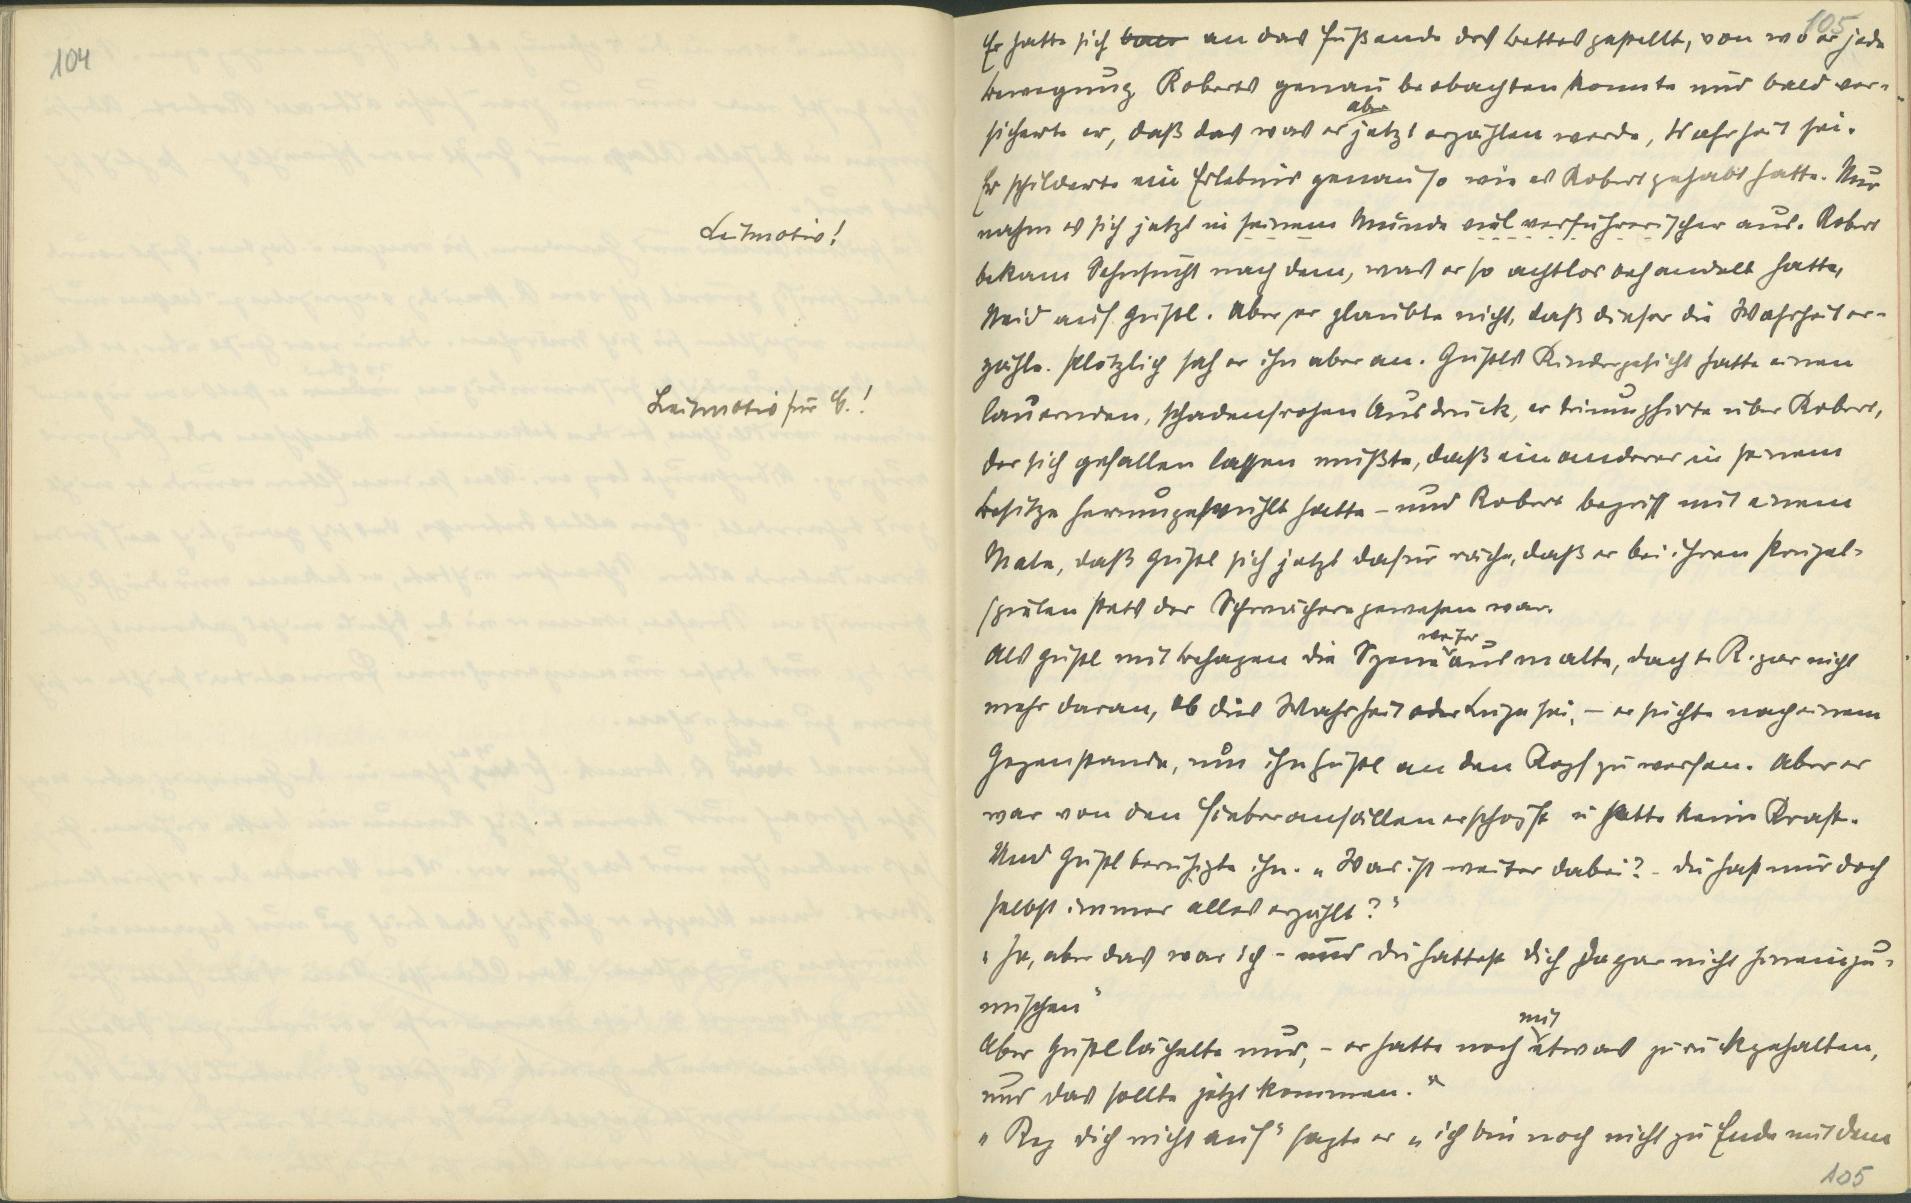 104
Leitmotiv!
Leitmotiv für G.!
105
Er hatte sich an das Fußende des Bettes gestellt, von wo er jede
Bewegung Roberts genau beobachten konnte und bald ver-
aber
sicherte er, daß das was er jetzt erzählen werde, Wahrheit sei.
Er schilderte ein Erlebnis genau so wie es Robert gehabt hatte. Nur
nahm es sich jetzt in seinem Munde viel verführerischer aus. Robert
bekam Sehnsucht nach dem, was er so achtlos behandelt hatte,
Neid auf Gustl. Aber er glaubte nicht, daß dieser die Wahrheit er-
zähle. Plötzlich sah er ihn aber an. Gustls Kindergesicht hatte einen
lauernden, schadenfrohen Ausdruck, er triumphirte über Robert,
der sich gefallen lassen mußte, daß ein anderer in seinem
Besitze herumgewühlt hatte – und Robert begriff mit einem
Male, daß Gustl sich jetzt dafür räche, daß er bei ihren Prügel-
spielen stets der Schwächere gewesen war.
weiter
Als Gustl mit Behagen die Szene ausmalte, dachte R. gar nicht
mehr daran, ob dies Wahrheit oder Lüge sei, – er suchte nach einem
Gegenstande, um ihn Gustl an den Kopf zu werfen. Aber er
war von den Fieberanfällen erschöpft u hatte keine Kraft.
Und Gustl beruhigte ihn. „Was ist weiter dabei? – Du hast mir doch
selbst immer alles erzählt?"
„Ja, aber das war ich – und du hattest dich da gar nicht hineinzu-
mischen"
mit
Aber Gustl lächelte nur, – er hatte noch etwas zurückgehalten,
und das sollte jetzt kommen."
„Reg dich nicht auf" sagte er „ich bin noch nicht zu Ende mit dem
105